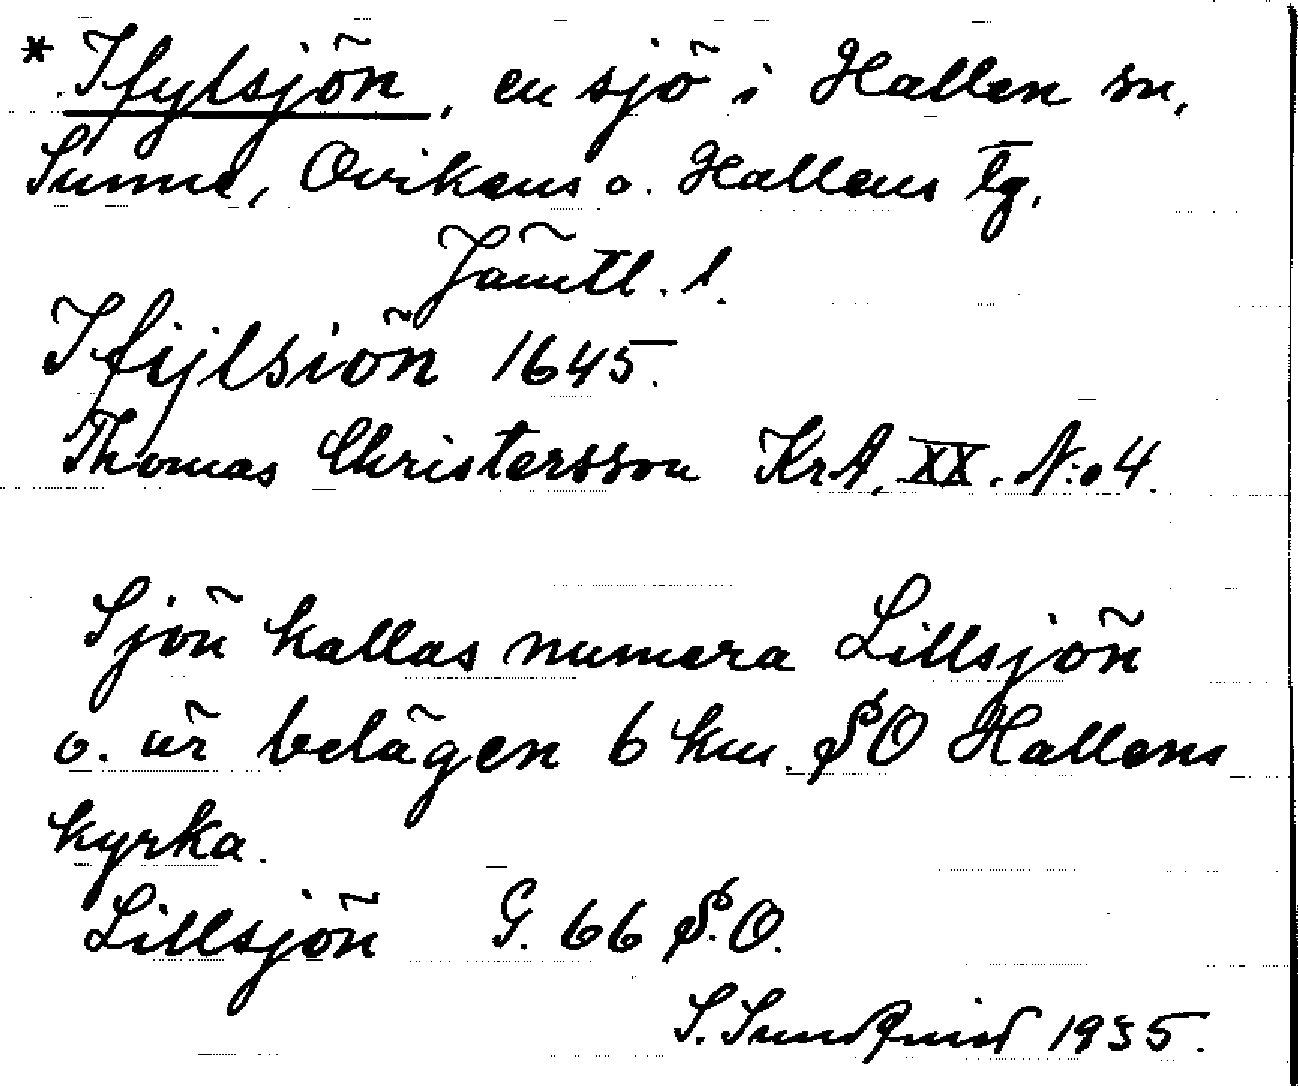 * Ifylsjön, en sjö i Hallen sn,
Sunne, Ovikens o. Hallens tg.
Jämtl. l.
Ifijlsiön 1645.
Thomas Christersson KrA. XX. N:o 4.
Sjön kallas numera Lillsjön
o. är belägen 6 km. SO Hallens
kyrka.
Lillsjön G. 66 S.O.
S. Sundquist 1935.